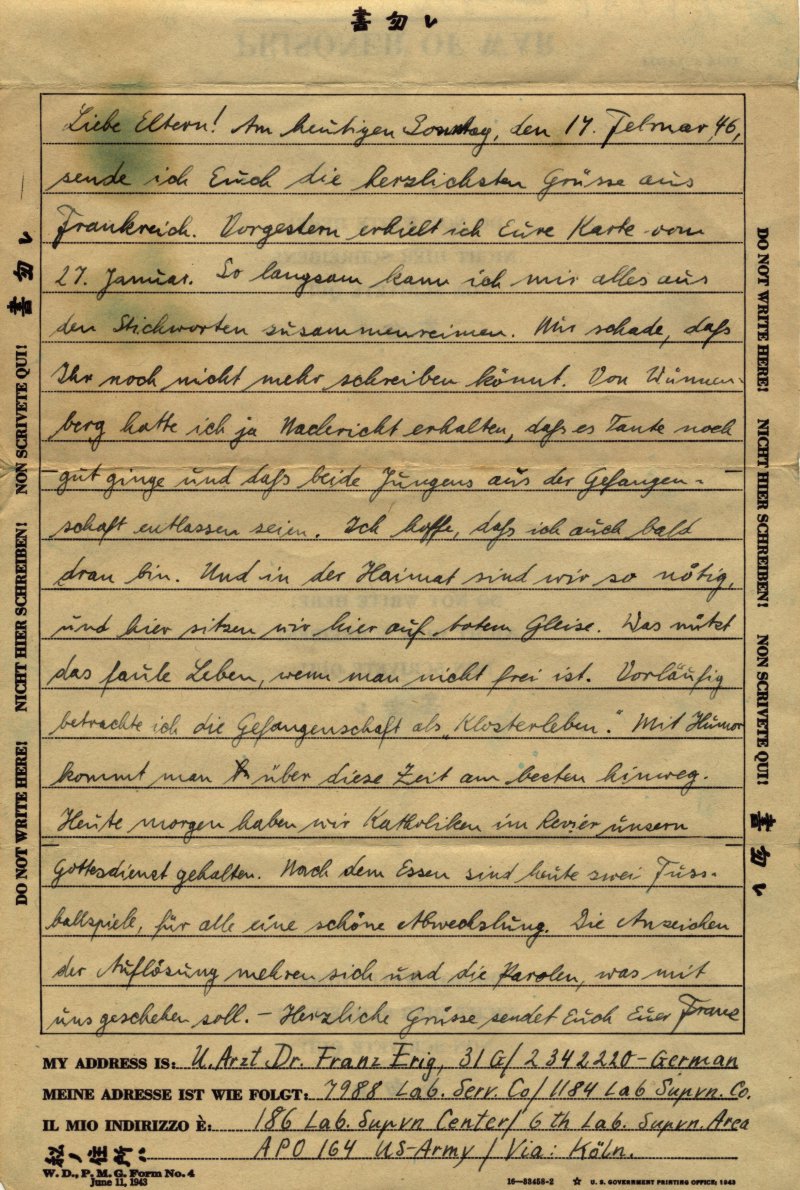 書勿レ
Liebe Eltern! Am heutigen Sonntag, den 17. Februar 46,
sende ich Euch die herzlichsten Grüsse aus
Frankreich. Vorgestern erhielt ich Eure Karte vom
27. Januar. So langsam kann ich mir alles aus
den Stichworten zusammenreimen. Nur schade, daß
Ihr noch nicht mehr schreiben könnt. Von Wünnen-
berg hatte ich ja Nachricht erhalten, daß es Tante noch
gut ginge und daß beide Jungens aus der Gefangen-
schaft entlassen seien. Ich hoffe, daß ich auch bald
dran bin. Und in der Haimat sind wir so nötig,
und hier sitzen wir hier auf totem Gleise. Was nützt
das faule Leben, wenn man nicht frei ist. Vorläufig
betrachte ich die Gefangenschaft als „Klosterleben." Mit Humor
kommt man über diese Zeit am besten hinweg.
Heute morgen haben wir Katholiken im Revier unsern
Gottesdienst gehalten. Nach dem Essen sind heute zwei Fuss-
ballspiele, für alle eine schöne Abwechslung. Die Anzeichen
der Auflösung mehren sich und die Parolen, was mit
uns geschehen soll. – Herzliche Grüsse sendet Euch Euer Franz
MY ADDRESS IS: U. Arzt Dr. Franz Erig, 31 G/ 2 342 220 – German
MEINE ADRESSE IST WIE FOLGT: 7988 Lab. Serv. Co/ 1184 Lab Supvn. Co.
IL MIO INDIRIZZO È: 186 Lab. Supvn Center/ 6 th Lab. Supvn. Area
私ノ住所ハ APO 164 US-Army / Via: Köln.
W. D., P. M. G. Form No. 4
June 11, 1943
16—33458-2 ☆ U. S. GOVERNMENT PRINTING OFFICE: 1943
DO NOT WRITE HERE! NICHT HIER SCHREIBEN! NON SCRIVETE QUI! 書勿レ
DO NOT WRITE HERE! NICHT HIER SCHREIBEN! NON SCRIVETE QUI! 書勿レ